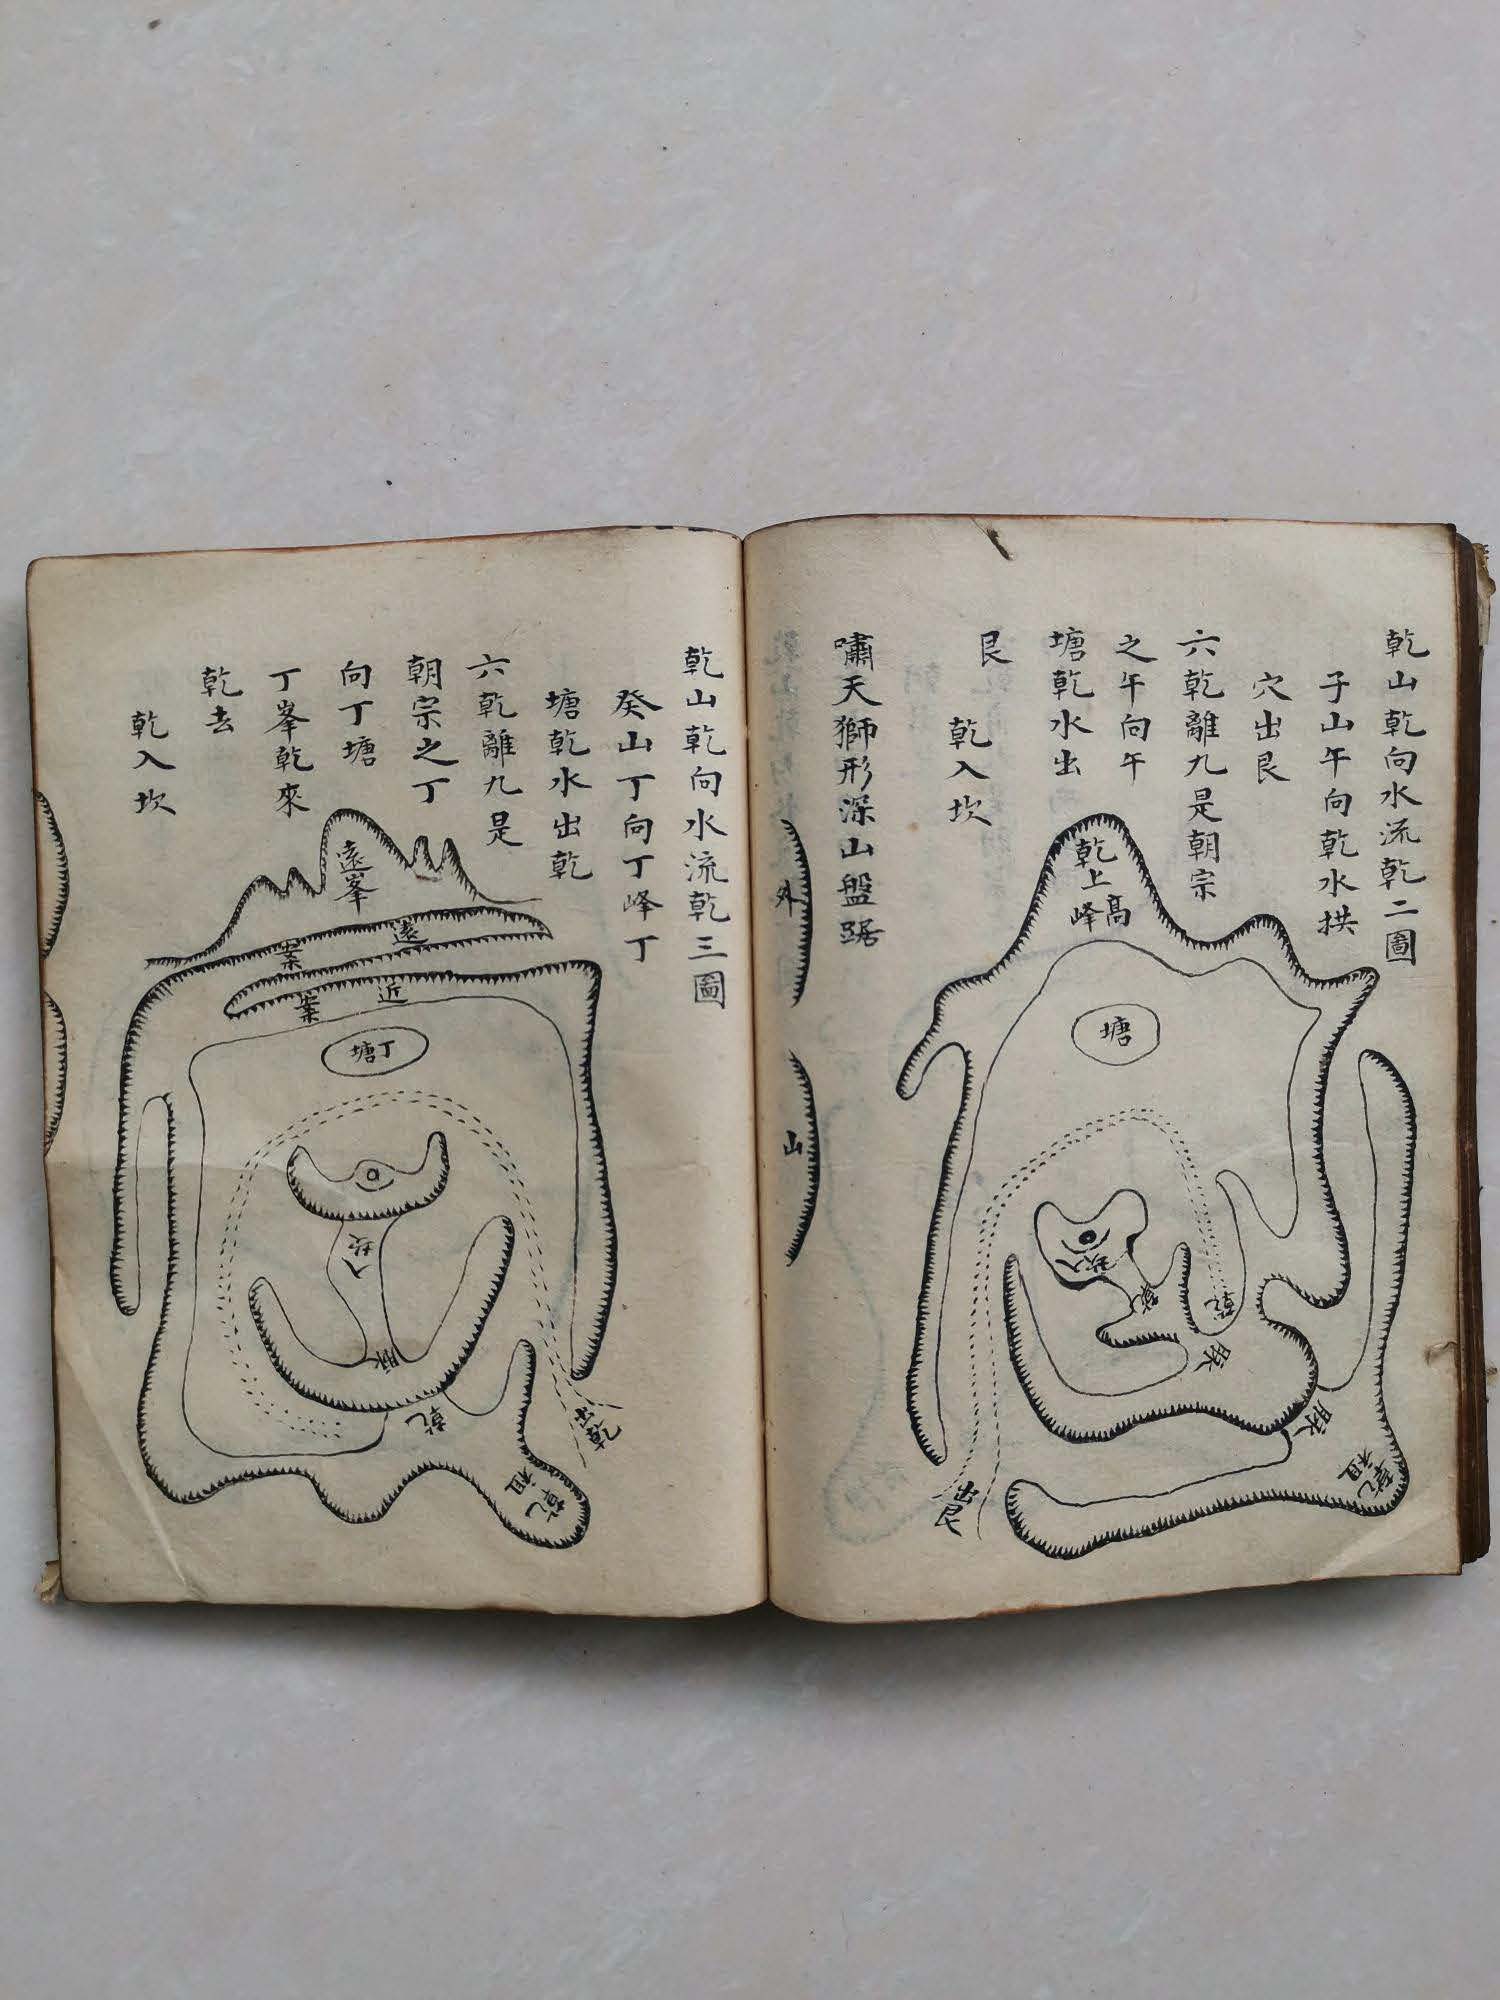 乾山乾向水流乾二圖
子山午向乾水拱
穴出艮
六乾離九是朝宗
之午向午
塘乾水出
艮
乾入坎
嘯天獅形深山盤踞
乾上高峰
塘
入坎
乾
乾
脈
脈
乾祖
出艮
外
山
乾山乾向水流乾三圖
癸山丁向丁峰丁
塘乾水出乾
六乾離九是
朝宗之丁
向丁塘
丁峯乾來
乾去
乾入坎
遠峯
遠案
近案
丁塘
入坎
脈
乾
乾祖